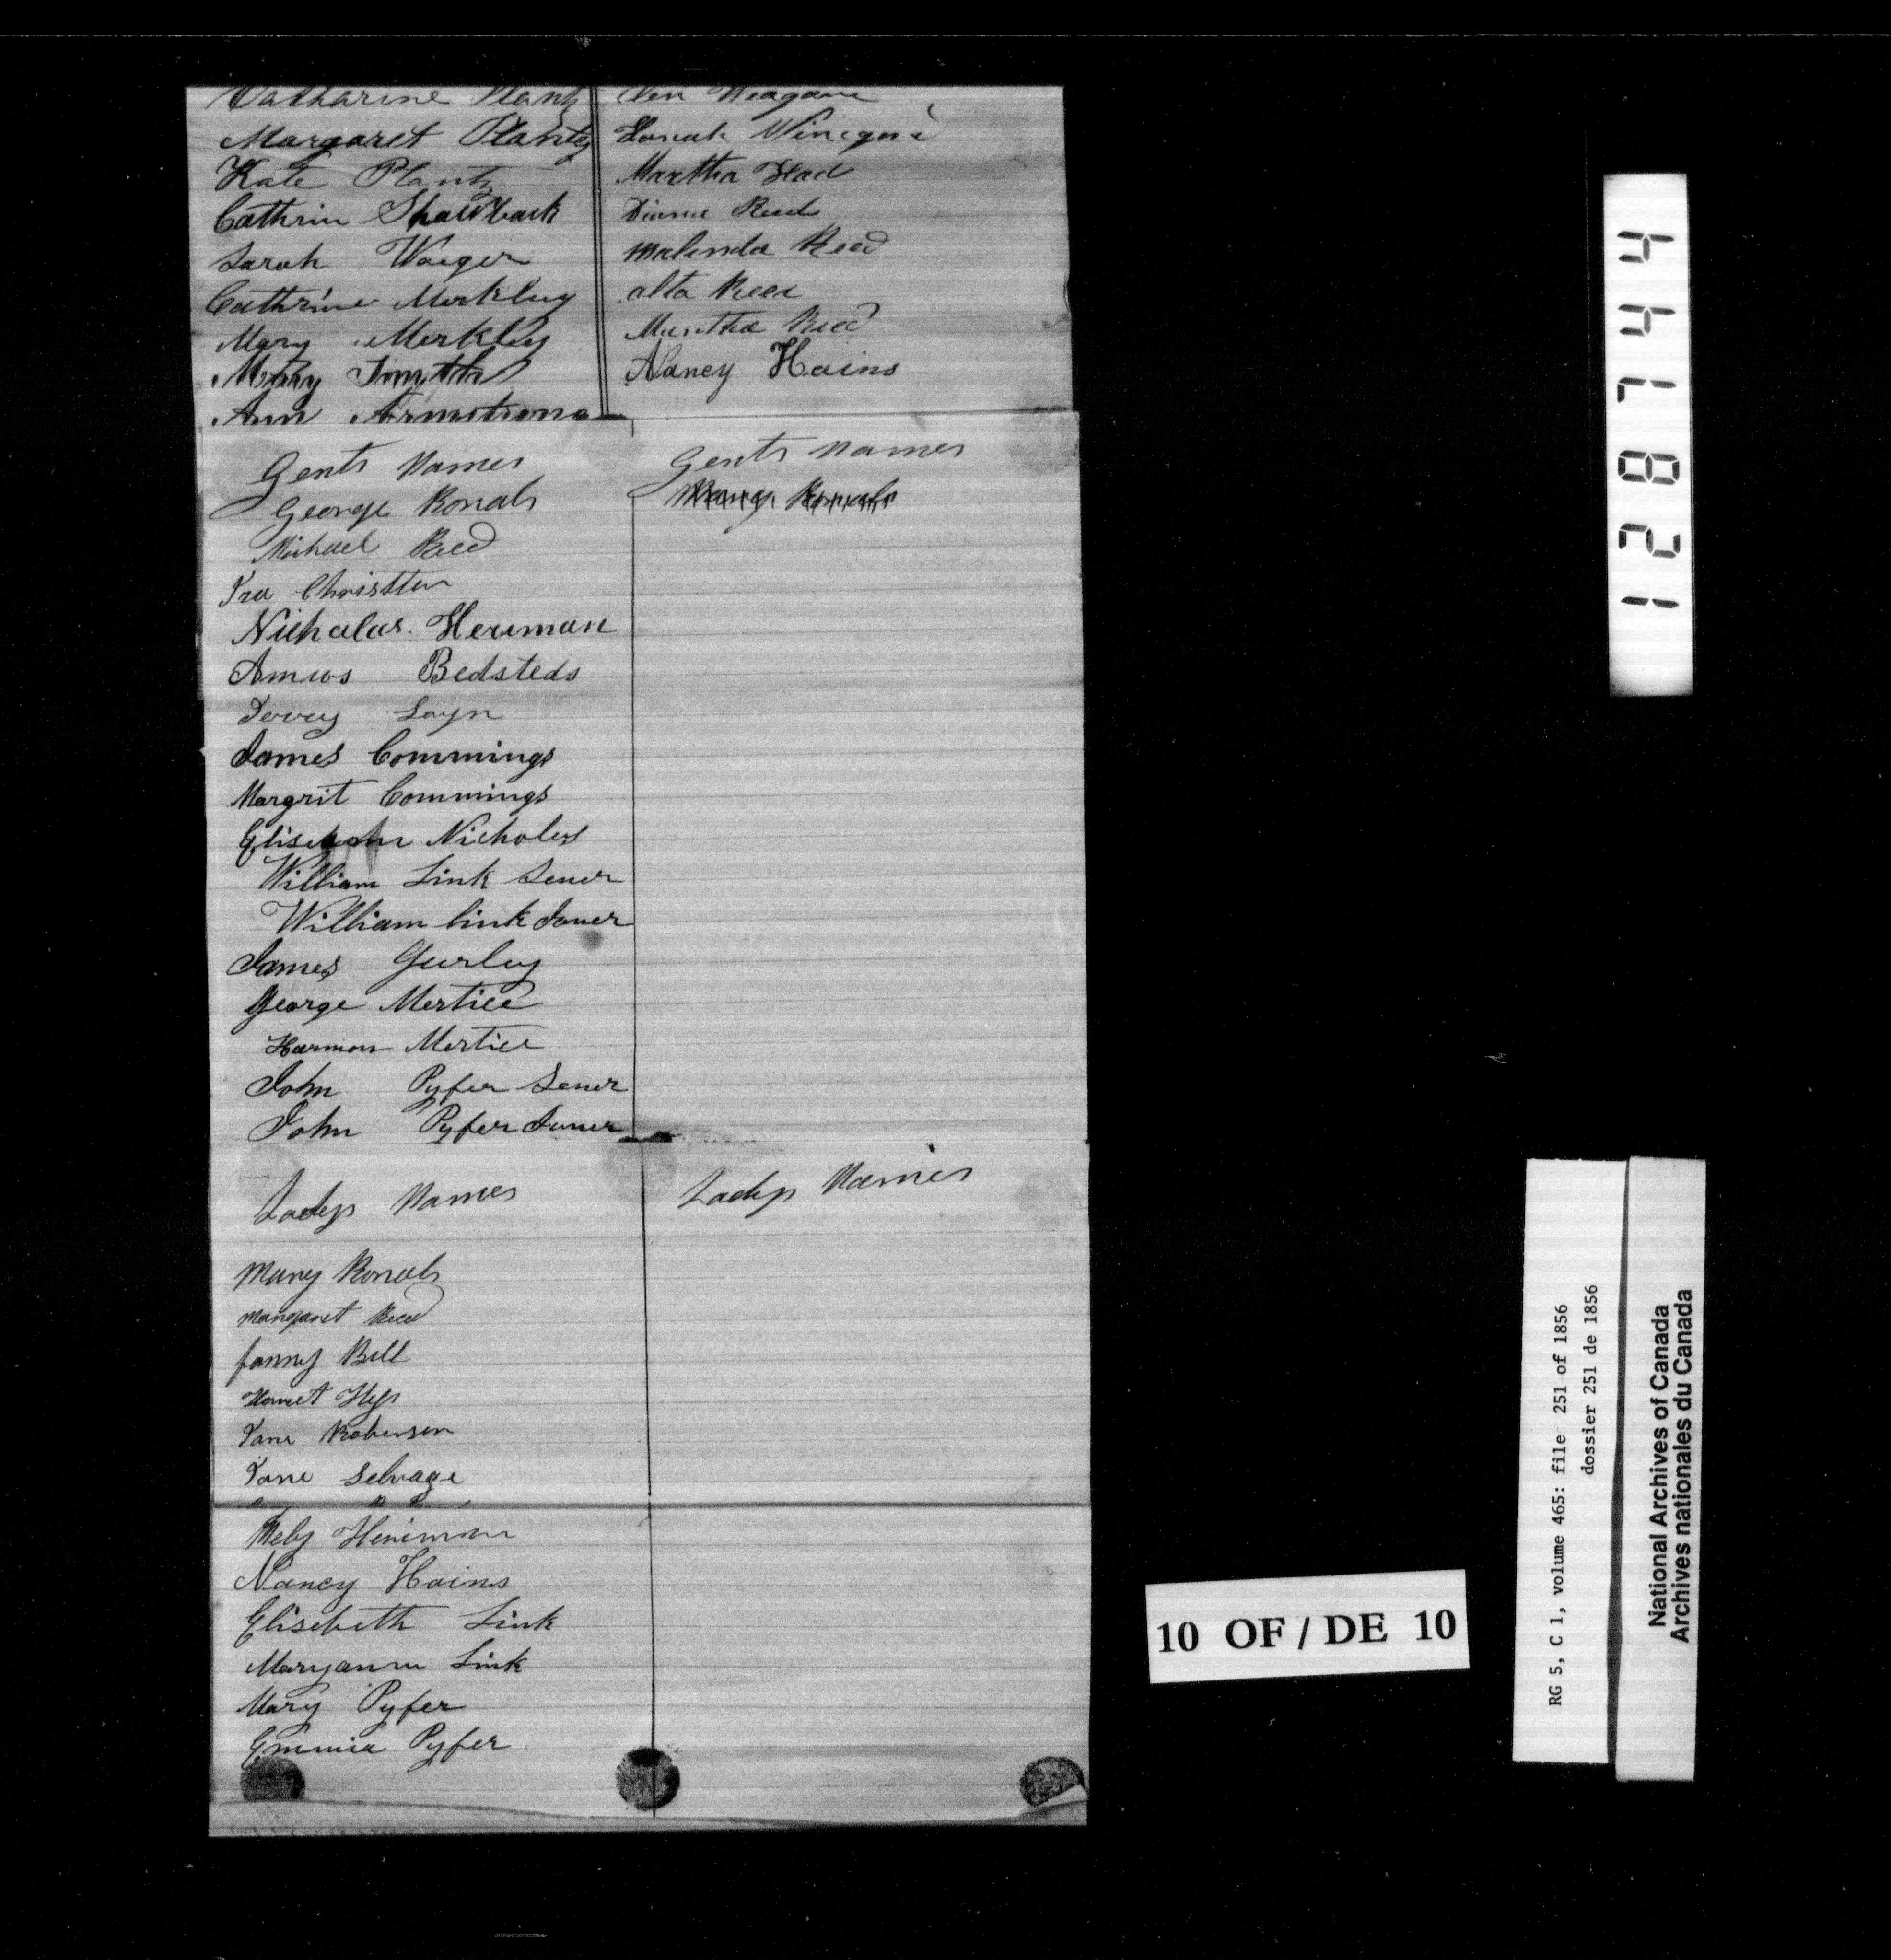 Catharine Plantz
Margaret Plantz
Kate Plantz
Cathrin Shawback
Sarah Waeger
Cathrine Merkley
Mary Merkley
Mary Smyth
Ann Armstrong
Weagane
Martha Had
Diana Reed
Malinda Reed
alta Reed
Martha Reed
Nancy Hains
Gents Names
George Ronals
Michael Reed
Ira Christten
Nicholas. Heriman
Amios Bedsteds
Layn
James Commings
Margrit Commings
Nicholes
William Link Sener
William link Joner
James Gurley
George Mertice
Harmon Mertice
John Pyfer Sener
John Pyfer Juner
Gents Names
Ladys Names
Mary Ronals
Margaret Reed
fanny Bell
Jane Roberson
Jane Selvage
Heniman
Nancy Hains
Elisebeth Link
Maryann Link
Mary Pyfer
Emmia Pyfer
Ladys Names
128744
10 OF / DE 10
RG 5, C 1, volume 465: file 251 of 1856
dossier 251 de 1856
National Archives of Canada
Archives nationales du Canada